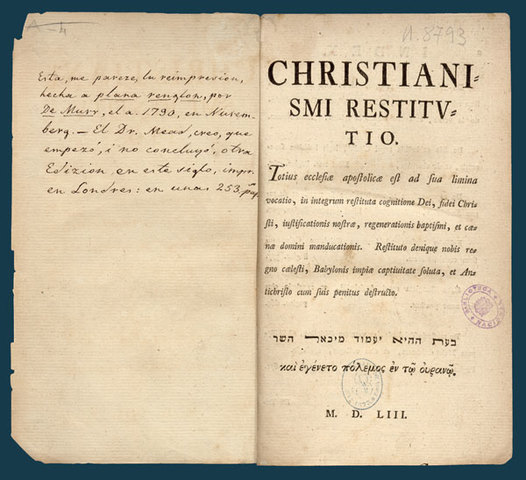 Esta, me parece, la reimpresion,
hecha a plana renglon, por
De Murr, el a. 1790, en Nurem-
berg. — El Dr. Mead, creo, que
empezó, i no concluyó, otra
Edizion en este siglo, impr.
en Londres: en unas 253 pag
N. 8793
CHRISTIANI-
SMI RESTITV-
TIO.
Totius ecclesiæ apostolicæ est ad sua limina
vocatio, in integrum restituta cognitione Dei, fidei Chri-
sti, iustificationis nostræ, regenerationis baptismi, et cœ-
næ domini manducationis. Restituto denique nobis re-
gno cælesti, Babylonis impiæ captiuitate soluta, et An-
tichristo cum suis penitus destructo.
בעת ההיא יעמוד מיכאל השר
καὶ ἐγένετο πόλεμος ἐν τῷ οὐρανῷ.
M. D. LIII.